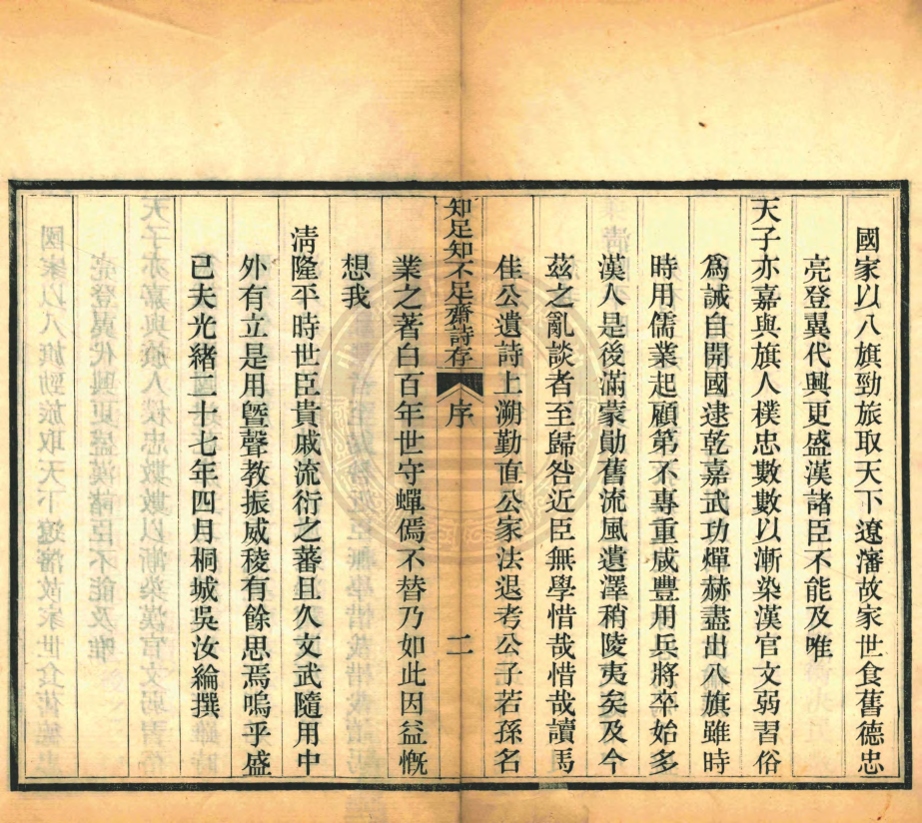 國家以八旗勁旅取天下遼瀋故家世食舊德忠
亮登翼代興更盛漢諸臣不能及唯
天子亦嘉與旗人樸忠數數以漸染漢官文弱習俗
爲誡自開國逮乾嘉武功燀赫盡出八旗雖時
時用儒業起顧第不專重咸豐用兵將卒始多
漢人是後滿蒙勛舊流風遺澤稍陵夷矣及今
茲之亂談者至歸咎近臣無學惜哉惜哉讀馬
佳公遺詩上溯勤直公家法退考公子若孫名
知足知不足齋詩存
序
二
業之著白百年世守蟬嫣不替乃如此因益慨
想我
淸隆平時世臣貴戚流衍之蕃且久文武隨用中
外有立是用曁聲教振威稜有餘思焉嗚乎盛
已夫光緒二十七年四月桐城吳汝綸撰